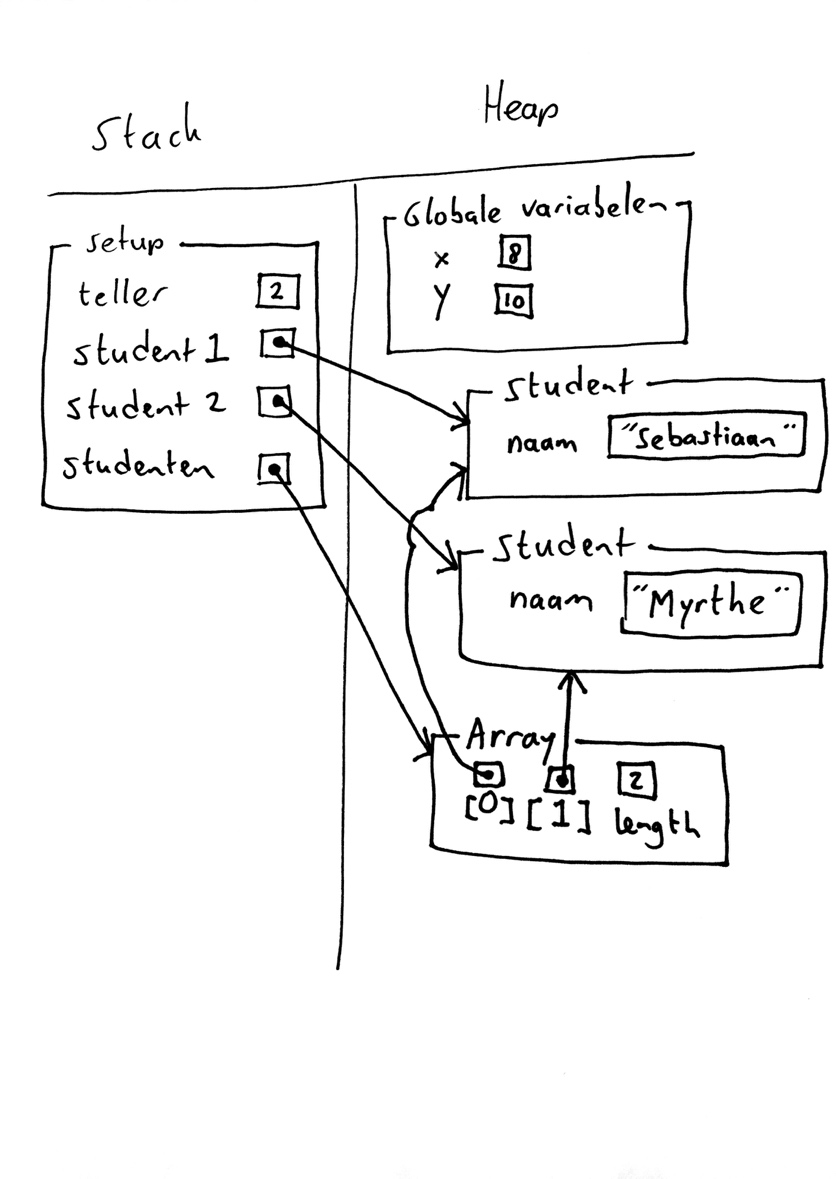 Stack
Heap
setup
teller 2
student 1
student 2
studenten
Globale variabelen
x 8
y 10
Student
naam "Sebastiaan"
Student
naam "Myrthe"
Array
2
[0] [1] length